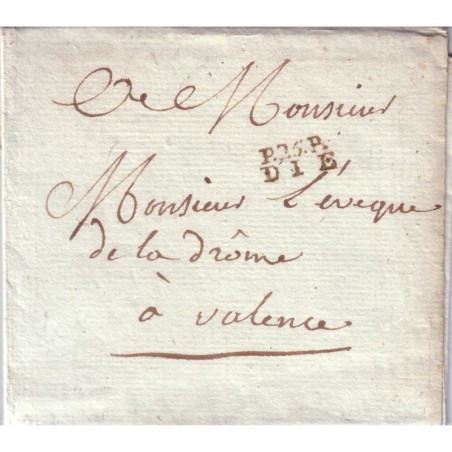 A Monsieur
P.25.P.
DIE
Monsieur L'évêque
de la drôme
à valence